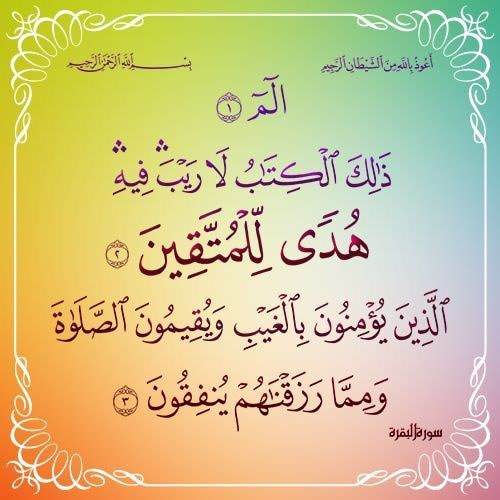 أعوذ بالله من الشيطان الرجيم
بسم الله الرحمن الرحيم
الٓمٓ ۝١
ذَٰلِكَ ٱلْكِتَٰبُ لَا رَيْبَ ۛ فِيهِ ۛ
هُدًى لِّلْمُتَّقِينَ ۝٢
ٱلَّذِينَ يُؤْمِنُونَ بِٱلْغَيْبِ وَيُقِيمُونَ ٱلصَّلَوٰةَ
وَمِمَّا رَزَقْنَٰهُمْ يُنفِقُونَ ۝٣
سورة البقرة